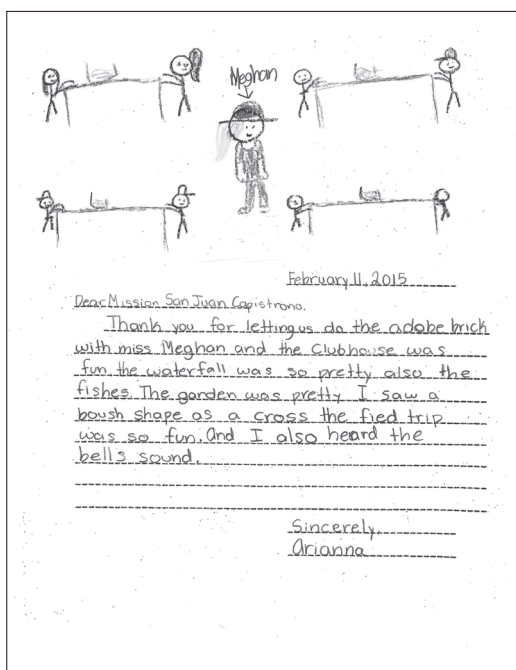 Meghan
February 11, 2015
Dear Mission San Juan Capistrano.
Thank you for letting us do the adobe brick
with miss Meghan and the Clubhouse was
fun the waterfall was so pretty also the
fishes. The garden was pretty I saw a
boush shape as a cross the fied trip
was so fun. And I also heard the
bell's sound.
Sincerely,
Arianna